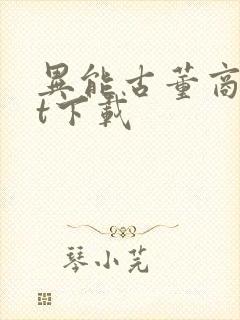 異能古董商
t下載
琴小芫